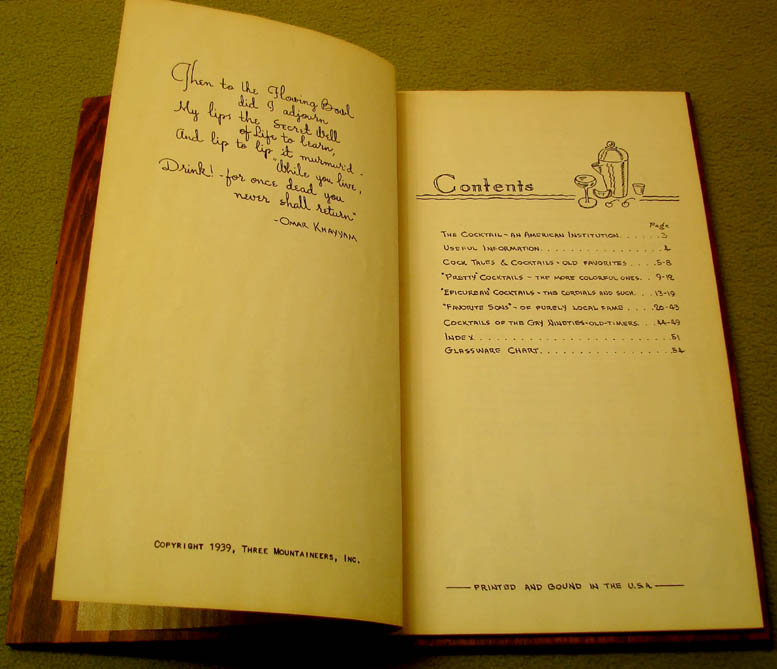 Then to the Flowing Bowl
did I adjourn
My lips the secret Well
of Life to learn,
And lip to lip it murmur'd -
"While you live,
Drink! - for once dead you
never shall return"
- Omar Khayyam
Copyright 1939, Three Mountaineers, Inc.
Contents
Page
The Cocktail - an American Institution. . . . . . 3
Useful Information. . . . . . . . . . . . .
Cock Tales & Cocktails - old favorites . . . . . 5-8
"Pretty" Cocktails - the more colorful ones. . . 9-12
"Epicurean" Cocktails - the cordials and such. . . 13-19
"Favorite Sons" - of purely local fame . . . . 20-43
Cocktails of the Gay Nineties - old-timers. . . 44-49
Index . . . . . . . . . . . . . . . . 51
Glassware Chart. . . . . . . . . . . . . 54
Printed and bound in the U.S.A.